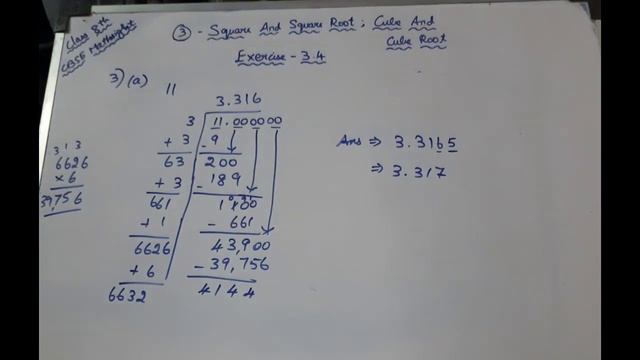 Class 8th
CBSE Mathsgist
③ - Square And Square Root ; Cube And
Cube Root
Exercise - 3.4
3) (a) 11
3.316
3 11.000000
+ 3 - 9
63 200
+ 3 - 189
661 1100
+ 1 - 661
6626 43,900
+ 6 - 39,756
6632 4144
3 1 3
6626
× 6
39,756
Ans ⇒ 3.3165
⇒ 3.317